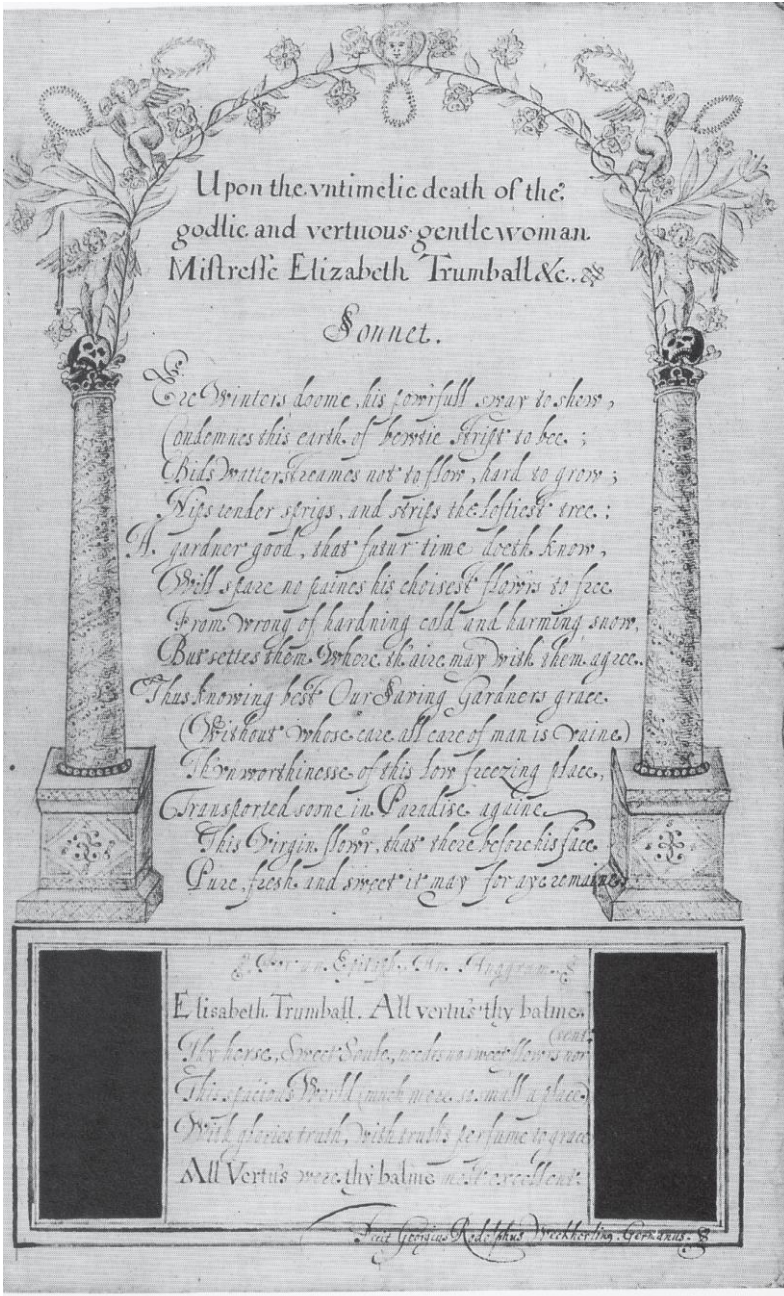 Upon the vntimelie death of the
godlie and vertuous gentlewoman
Mistresse Elizabeth Trumball &c.
Sonnet.
Ere Winters doome, his pow'rfull sway to shew,
Condemnes this earth of bewtie stript to bee;
Bids watter streames not to flow, hard to grow;
Nips tender sprigs, and strips the loftiest tree:
A gardner good, that futur time doeth know,
Will spare no paines his choisest flowrs to free
From wrong of hardning cold and harming snow,
But settes them where th'aire may with them agree.
Thus knowing best Our Saving Gardners grace
(Without whose care all care of man is vaine)
Th'vnworthinesse of this low freezing place,
Transported soone in Paradise againe
This Virgin flowr, that there before his face
Pure, fresh and sweet it may for aye remaine.
For an Epitaph. An Anagram.
Elisabeth Trumball. All vertu's thy balme.
(sent
Thy herse, Sweet Soule, needes no sweet flowrs nor
This spacious World (much more so small a place)
With glories truth, with truths perfume to grace
All Vertu's were thy balme most excellent.
Fecit Georgius Rodolphus Weckherling. Germanus.